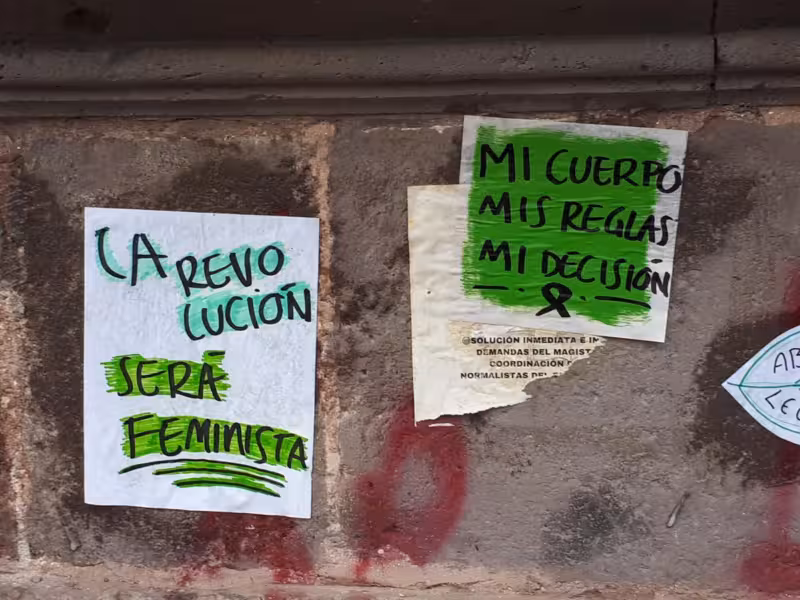 LA REVO
LUCIÓN
SERÁ
FEMINISTA
MI CUERPO
MIS REGLAS
MI DECISIÓN
SOLUCIÓN INMEDIATA E
DEMANDAS DEL
COORDINACIÓN
NORMALISTAS
AB
LE